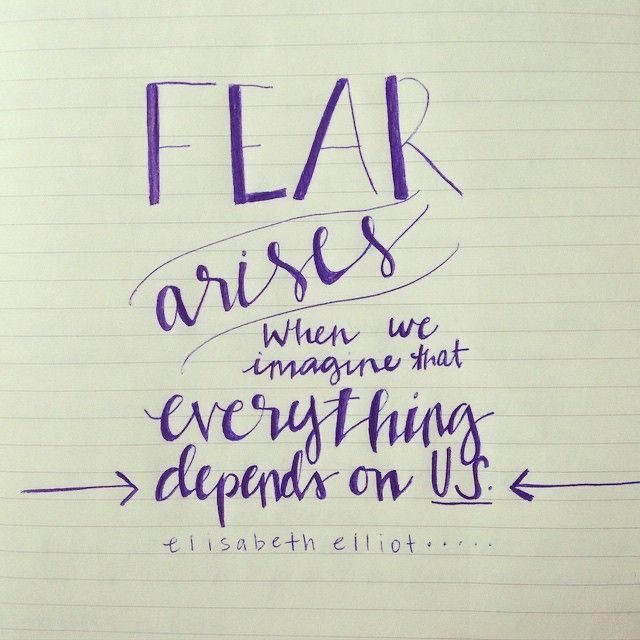 FEAR
arises
When we
imagine that
everything
depends on US.
elisabeth elliot.....